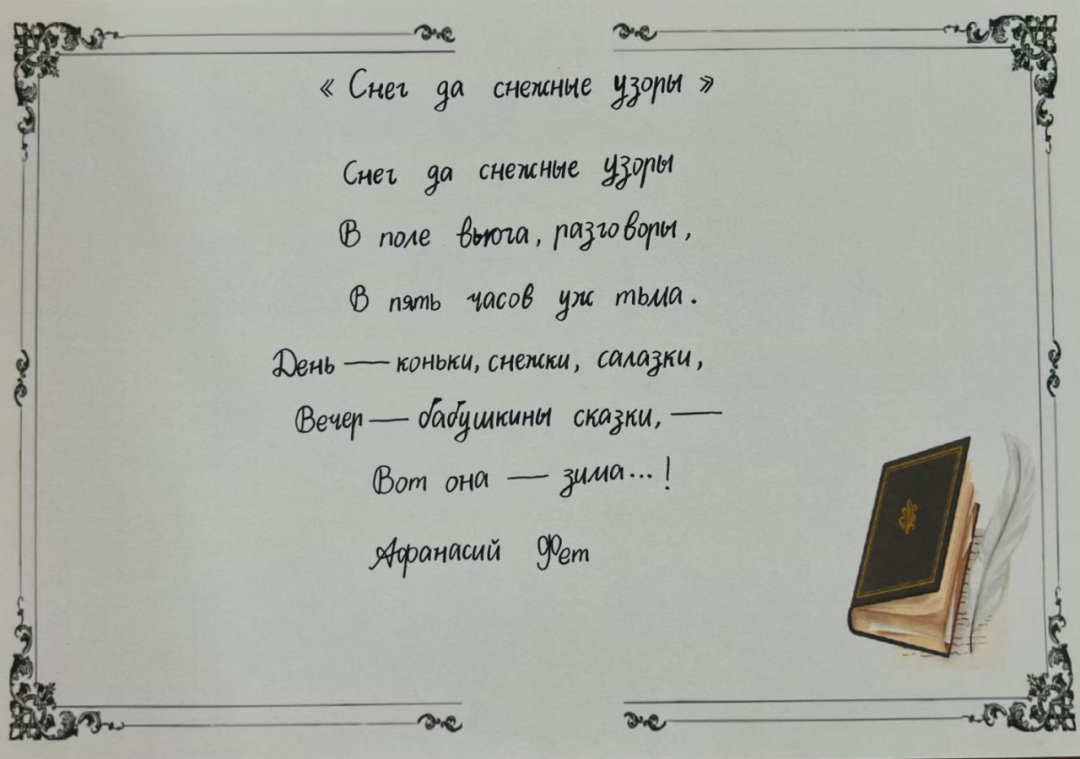 « Снег да снежные узоры »
Снег да снежные узоры
В поле вьюга, разговоры,
В пять часов уж тьма.
День — коньки, снежки, салазки,
Вечер — бабушкины сказки, —
Вот она — зима...!
Афанасий Фет